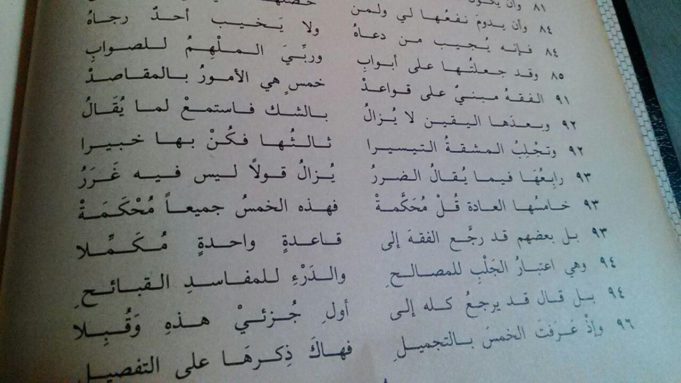 ٨١ وأن يكون
٨٤ وأن يدوم نفعها لي ولمن
٨٤ فإنه يُجيب من دعاهُ ولا يَخيب أحدٌ رجاهُ
٨٥ وقد جعلتُها على أبوابِ وربِّيَ الملْهِمُ للصوابِ
٩١ الفقهُ مبنيٌ على قواعدْ خمسٍ هي الأمورُ بالمقاصدْ
٩٢ وبعدَها اليقين لا يُزالُ بالشك فاستمعْ لما يُقَالُ
٩٢ وتَجْلِبُ المشقةُ التيسيرا ثالثُها فكُنْ بها خبيرا
٩٣ رابِعُهَا فيما يُقالُ الضررُ يُزالُ قولاً ليس فيه غَرَرُ
٩٣ خامسُها العادة قُلْ مُحَكَّمةْ فهذه الخمسُ جميعاً مُحْكَمَةْ
٩٣ بل بعضهم قد رجَّع الفقهَ إلى قاعدةٍ واحدةٍ مُكَمِّلا
٩٤ وهي اعتبارُ الجَلْبِ للمصالحِ والدَرْءِ للمفاسدِ القبائحِ
٩٤ بل قال قد يرجعُ كله إلى أولِ جُزئيْ هذهِ وَقُبِلا
٩٦ وإذْ عَرَفتَ الخمسَ بالتجميلِ فهاكَ ذِكرهَا على التفصيلِ